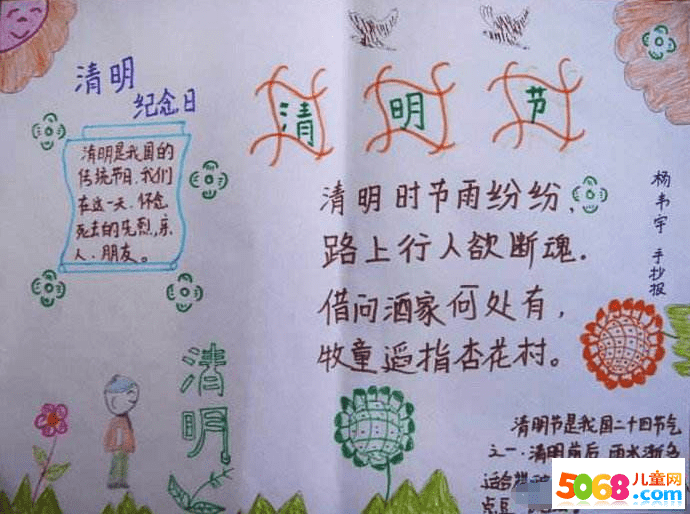 清明
纪念日
清明是我国的
传统节日、我们
在这一天、怀念
死去的先烈,亲
人、朋友。
清明节
清明时节雨纷纷,
路上行人欲断魂.
借问酒家何处有,
牧童遥指杏花村。
杨韦宇 手抄报
清明
清明节是我国二十四节气
之一.清明前后 雨水渐多
适合
点豆
5068儿童网
.com